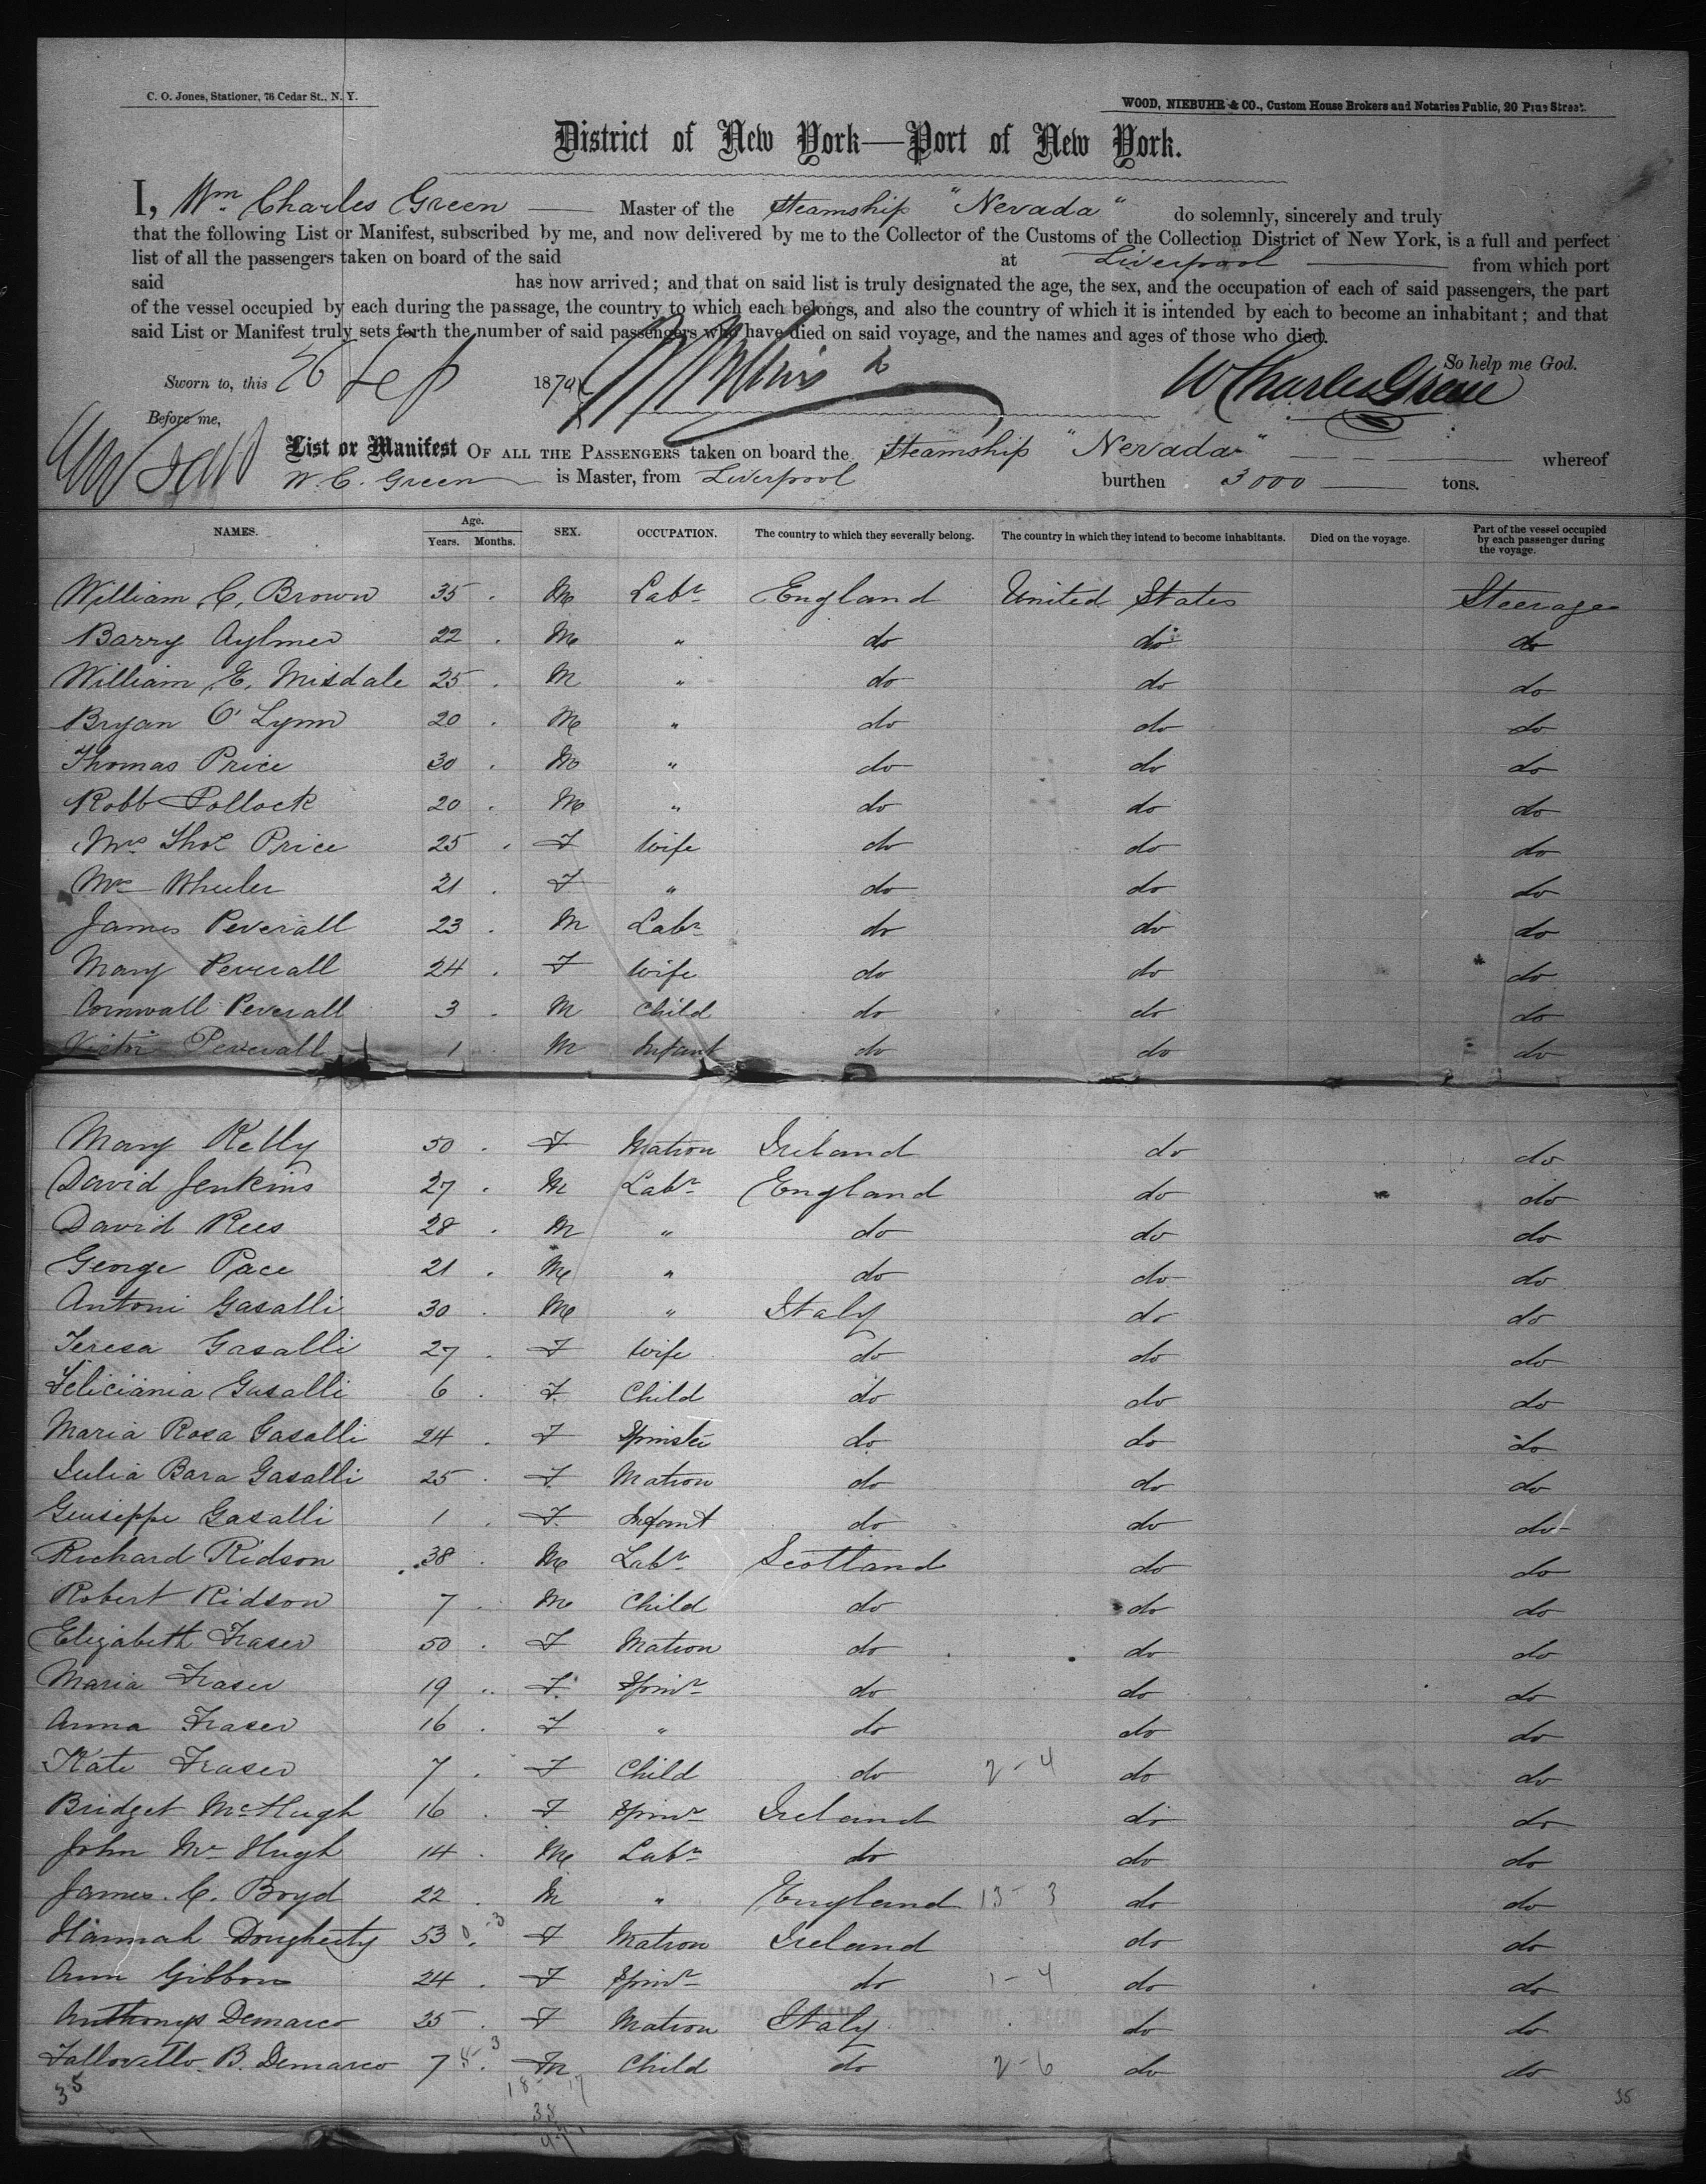 C. O. Jones, Stationer, 76 Cedar St., N. Y.
WOOD, NIEBUHR & CO., Custom House Brokers and Notaries Public, 20 Pine Street.
District of New York—Port of New York.
I, Wm. Charles Green Master of the Steamship "Nevada" do solemnly, sincerely and truly
that the following List or Manifest, subscribed by me, and now delivered by me to the Collector of the Customs of the Collection District of New York, is a full and perfect
list of all the passengers taken on board of the said at Liverpool from which port
said has now arrived; and that on said list is truly designated the age, the sex, and the occupation of each of said passengers, the part
of the vessel occupied by each during the passage, the country to which each belongs, and also the country of which it is intended by each to become an inhabitant; and that
said List or Manifest truly sets forth the number of said passengers who have died on said voyage, and the names and ages of those who died.
So help me God.
Sworn to, this 26 Sep 1874 W Charles Green
Before me,
List or Manifest OF ALL THE PASSENGERS taken on board the Steamship "Nevada" whereof
W. C. Green is Master, from Liverpool burthen 3000 tons.
NAMES. Age. Years. Months. SEX. OCCUPATION. The country to which they severally belong. The country in which they intend to become inhabitants. Died on the voyage. Part of the vessel occupied by each passenger during the voyage.
William C. Brown 35 M Labr England United States Steerage
Barry Aylmer 22 M " do do do
William E. Misdale 25 M " do do do
Bryan O'Lynn 20 M " do do do
Thomas Price 30 M " do do do
Robb Pollock 20 M " do do do
Mrs Thos Price 25 F Wife do do do
Mrs Wheeler 21 F " do do do
James Peverall 23 M Labr do do do
Mary Peverall 24 F Wife do do do
Cornwall Peverall 3 M Child do do do
Victor Peverall 1 M Infant do do do
Mary Kelly 50 F Matron Ireland do do
David Jenkins 27 M Labr England do do
David Rees 28 M " do do do
George Pace 21 M " do do do
Antoni Gasalli 30 M " Italy do do
Teresa Gasalli 27 F Wife do do do
Feliciania Gasalli 6 F Child do do do
Maria Rosa Gasalli 24 F Spinster do do do
Julia Bara Gasalli 25 F Matron do do do
Giuseppe Gasalli 1 F Infant do do do
Richard Ridson 38 M Labr Scotland do do
Robert Ridson 7 M Child do do do
Elizabeth Fraser 50 F Matron do do do
Maria Fraser 19 F Spinr do do do
Anna Fraser 16 F " do do do
Kate Fraser 7 F Child do 2-4 do do
Bridget McHugh 16 F Spinr Ireland do do
John McHugh 14 M Labr do do do
James C. Boyd 22 M " England 13-3 do do
Hannah Dougherty 53 F Matron Ireland do do
Ann Gibbons 24 F Spinr do 1-4 do do
Anthonys Demarco 25 F Matron Italy do do
B. Demarco 7 M Child do 2-6 do do
35 18 17 35
38